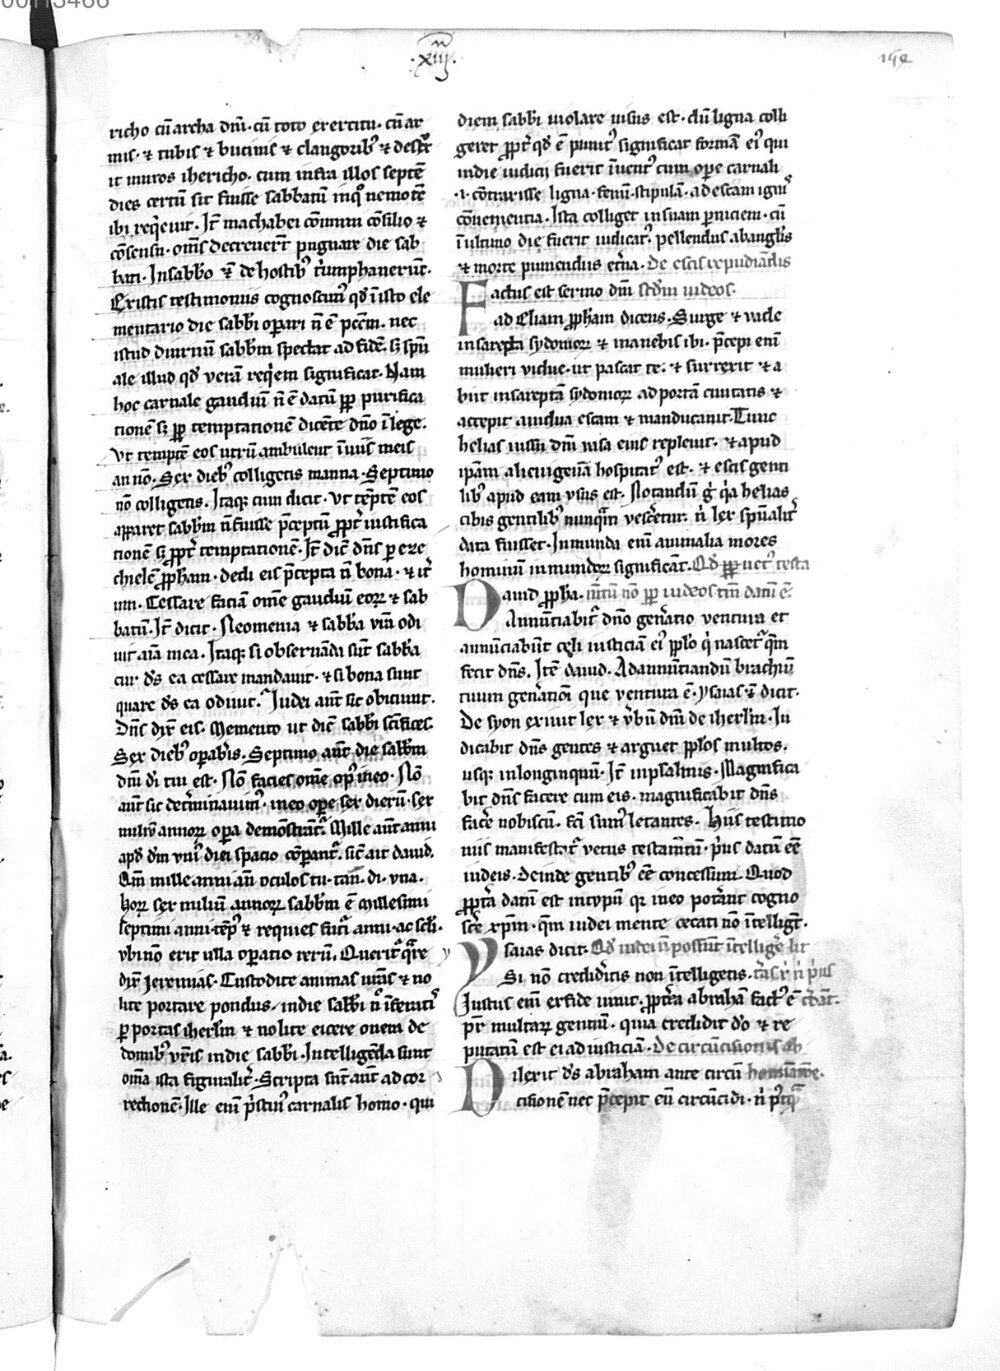 .xiiij.
richo cū archa dn̄i · cū toto exercitu · cū ar
mis · ⁊ tubis ⁊ bucinis ⁊ clangorib⁹ ⁊ dest͛x
it muros ihericho · cum infra illos septē
dies certū sit fuisse sabbatum inq͛ nemo tē
ibi req͛euit · Jt͛ machabei cōmuni cōsilio ⁊
cōsensu · om̄s decreuer̄t pugnare die sab
bati · Jn sabb̄o ⁊ de hostib⁹ t͛umphauerūt ·
Ex istis testimoniis cognoscim⁹ qd̄ ī isto ele
mentario die sabb̄i op̄ari n̄ ē pcc̄m · nec
istud diurnū sabb̄m spectat ad fidē · sꝫ sp̄u
ale illud qd̄ verā req͛em significat · Nam
hoc carnale gaudiū n̄ ē datū pp̄ purifica
tionē sꝫ pp̄ temptationē dicēte dn̄o ī lege ·
Vt temptē eos utrū ambulent ī uiis meis
an nō · Sex dieb⁹ colligetis manna · Septimo
nō colligetis · Jtaqꝫ cum dicit · Vt tēptē eos
apparet sabb̄m n̄ fuisse p̄ceptū ppt͛ iustifica
tionē sꝫ ppt͛ temptationē · Jt͛ dic̄ dn̄s p eze
chielē pp̄ham · dedi eis p̄cepta n̄ bona · ⁊ it͛
um · Cessare faciā om̄e gaudiū eoꝝ ⁊ sab
batū · Jt͛ dicit · Neomenia ⁊ sabb̄a vr̄a odi
uit aīa mea · Jtaqꝫ si obseruādi sūt sabb̄a
cur d̄s ea cessare mandauit · ⁊ si bona sunt
quare d̄s ea odiuit · Judei aūt sic obiciunt ·
Dn̄s dix̄ eis · Memento ut diē sabb̄i sc̄ifices
Sex dieb⁹ op̄abis · Septimo aūt die sabb̄m
dn̄i di tui est · Nō facies om̄e op⁹ ī eo · Nō
aūt sic det͛minauim⁹ · in eo ope sex dierū · sex
miliū annoꝝ opa demōstrat͛ · Mille aūt anni
apd̄ dn̄m vni⁹ diei spacio cōparant͛ · sic̄ ait dauid ·
Qm̄ mille anni an̄ oculos tu · tan̄ · di · vna ·
Hoꝝ sex milium annoꝝ sabb̄m ē millesimi
septimi anni tēp⁹ ⁊ requies
vbi nō erit ulla opatio rerū · Querit͛ q͛re
dix̄ Jeremias · Custodite animas vr̄as ⁊ no
lite portare pondus · in die sabb̄i n̄
p portas ih̄rlm ⁊ nolite eicere onera de
domib⁹ vr̄is in die sabb̄i · Jntelligēda sunt
om̄a ista figuralit͛ · Scripta sūt aūt ad cor
rectionē · Jlle eni p̄scin⁹ carnalis homo · qui
diem sabb̄i uiolare uisus est · dū ligna colli
geret ppt͛ qd̄ ē punit⁹ significat formā ei⁹ qui
in die iudicii fuerit īuent⁹ cum ope carnali
· i · cōtraxisse ligna · fenū · stipulam · ad escam igni⁹
cōuenientia · Jsta colliget in suam pniciem · cū
ī ultimo die fuerit iudicat⁹ · pellendus ab anglis
⁊ morte puniendus et͛na · De escis repudiādis
Factus est sermo dn̄i scd̄m iudeos ·
ad Eliam pp̄ham dicens · Surge ⁊ vade
in sarepta sydonioꝝ ⁊ manebis ibi · p̄cepi enī
mulieri vidue · ut pascat te · ⁊ surrexit ⁊ a
biit in sareptā sydonioꝝ ad portā ciuitatis ⁊
accepit auidua escam ⁊ manducauit · Tunc
helias iussu dn̄i vasa eius repleuit · ⁊ apud
ipām alienigenā hospitat⁹ est · ⁊ escis genti
lib⁹ apud eam vsus est · Notandū g͛ q͛a helias
cibis gentilib⁹ nunq͛m vesceretur · n̄ lex sp̄ualit͛
data fuisset · Jnmunda enī animalia mores
hominū inmundoꝝ significāt · Qd̄ pp̄ uet⁹ testa
Dauid pp̄ha · mtū nō pp̄ iudeos tm̄ datū ē ·
Annūtiabit͛ dn̄o gen̄atio ventura et
annūciabūt celi iusticiā ei⁹ pplo q͛ nascet͛ q͛m
fecit dn̄s · Jtē dauid · Ad annūtiandū brachiū
tuum gen̄ationi que ventura ē · ysaias · dicit ·
De syon exiuit lex ⁊ v͛bū dn̄i de ih̄rlm · Ju
dicabit dn̄s gentes ⁊ arguet pplos multos ·
usqꝫ in longinquū · Jt͛ in psalmis · Magnifica
bit dn̄s facere cum eis · magnificabit dn̄s
fac͛e nobiscū · fc̄i sum⁹ letantes · Hiis testimo
niis manifestat͛ vetus testamtūm · p̄us datū eē
iudeis · deinde gentib⁹ eē concessum · Quod
ppt͛a datū est in typum qꝛ in eo pot͛ant cogno
sc͛e xp̄m · qm̄ iudei mente cecati nō ītelligt͛ ·
Ysaias dicit · Qd̄ iudei n̄ possūt ītellige͛
Si nō credid͛itis non ītelligetis ·
Justus enī ex fide uiuit · ppt͛ea abrahā fact⁹ ē
pr̄ multaꝝ gentiū · quia credidit d̄o ⁊ re
putatū est ei ad iusticiam · De circūcisionis
Dilexit d̄s abraham ante circū
cisionē nec p̄cepit eū circūcidi · n̄